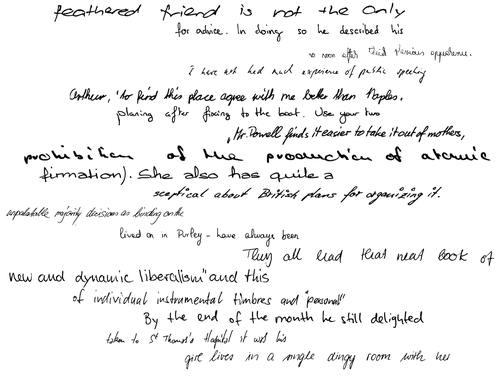 feathered friend is not the only
for advice. In doing so he described his
so soon after their previous appearance.
I have not had much experience of public speaking
Arthur, 'to find this place agree with me better than Naples.
planing after fixing to the boat. Use your two
, Mr. Powell finds it easier to take it out of mothers,
prohibition of the production of atomic
firmation). She also has quite a
sceptical about British plans for organizing it.
unpalatable majority decisions as binding on the
lived on in Purley - have always been
They all had that neat look of
new and dynamic liberalism" and this
of individual instrumental timbres and "personal"
By the end of the month he still delighted
taken to St Thomas's Hospital it was his
girl lives in a single dingy room with her